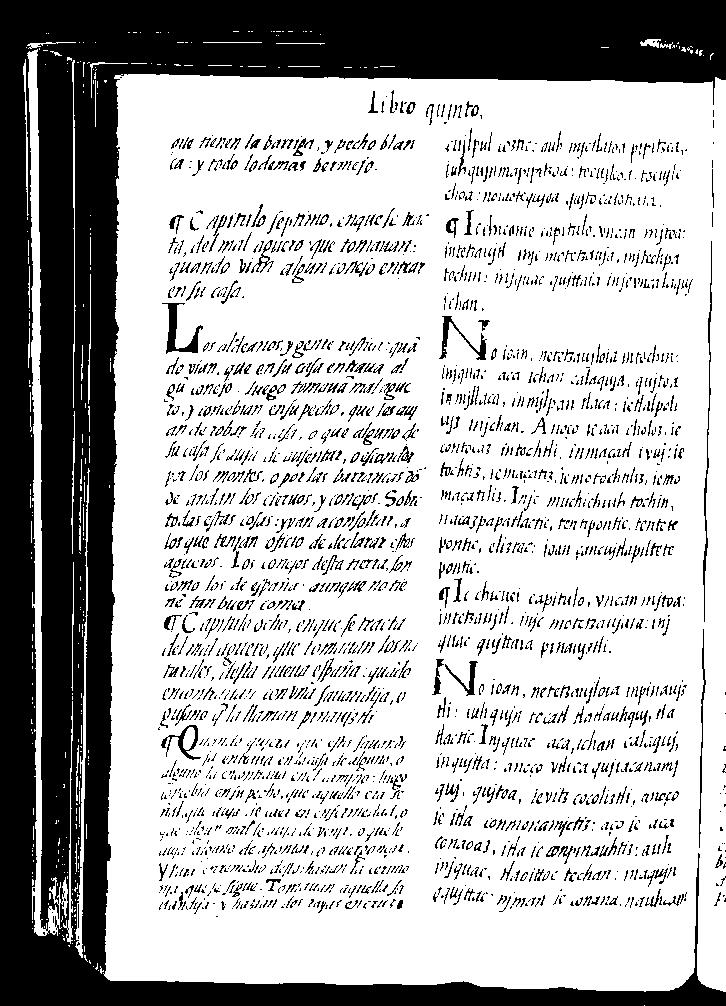 Libro qujnto.
que tienen la barriga, y pecho blan
ca: y todo lo demas bermejo.
¶ Capitulo septimo, en que se trac
ta, del mal aguero que tomauan:
quando vian algun conejo entrar
en su casa.
Los aldeanos, y gente rustica: quã
do vian, que en su casa entraua al
gũ conejo. luego tomauã mal ague
ro, y concebian en su pecho, que los auj
an de robar la casa, o que alguno de
su casa se auja de ausentar, o esconder
por los montes, o por las barrancas dõ
de andan los cieruos, y conejos. Sobre
todas estas cosas: yvan a consoltar, a
los que tenjan oficio de declarar estos
agueros. Los conejos desta tierra, son
como los de españa: aunque no tie
nẽ tan buen comer.
¶ Capitulo ocho, en que se tracta
del mal aguero, que tomauan los na
turales, desta nueua españa: quãdo
encontrauan con vna sauandija, o
gusano q̃ la llaman pinaujztli
¶ Quando qujera que esta sauandi
ja entraua en la casa de alguno, o
alguno la encontraua en el camjno: luego
concebia en su pecho, que aquello era se
ñal que auja de caer en enfermedad, o
que algun mal le auja de venjr, o que le
auja alguno de afrontar, o auergonçar.
Y para remedio desto: hazian la cerimo
nja, que se sigue. Tomauan aquella sa
uandija: y hazian dos rayas en cruz
cujtlpul coztic: auh
¶ Ic chicome capitulo, vncan mjtoa:
intetzaujtl inje motetzaujaia, in jtechpa
tochin: injquac qujttaia
ichan.
No ioan, netetzaujloia in tochin:
injquac aca ichan calaquja, qujtoa
in mjllaca, in mjlpan tlaca: ie tlalpoli
ujz injchan. Anoço ie aca choloz, ie
contocaz in tochtli, in maçatl ivuj: ie
tochtiz, ie maçatiz, ie motochtiliz, ie mo
maçatiliz. Inje muchichiuh tochin,
nacazpapatlactic, tentzpontic, tentete
pontic, eliztac: ioan
pontic.
¶ Ic chicuei capitulo, vncan mjtoa:
intetzaujtl, inje motetzaujaia: inj
quac qujttaia pinaujztli.
No ioan, netetzaujloia in pinaujz
tli: iuhqujn tocatl tlatlauhquj, tla
tlactic. Injquac aca, ichan calaquj,
in qujtta: anoço vtlica qujiacanamj
quj, qujtoa, ie vitz cocoliztli, anoço
ie itla conmonamjctiz: aço ie aca
conaoaz, itla ic conpinauhtiz: auh
injquac, tlaoittoc techan: in aqujn
oqujttac njman ic conana, nauhcam